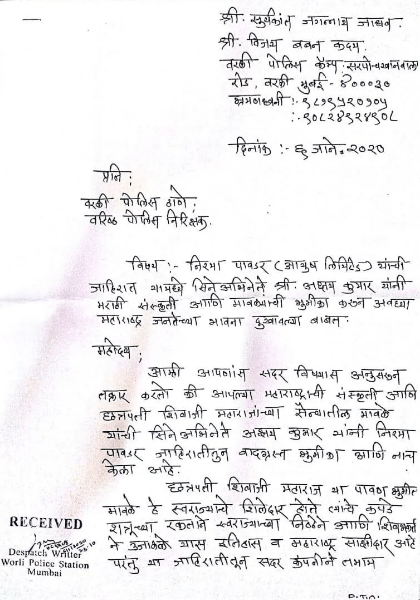 श्री. सुर्यकांत जगन्नाथ जाधव
श्री. विजय बबन कदम.
वरळी पोलिस कॅम्प, सरपोचखानवाला
रोड, वरळी मुंबई - ४०००३०
भ्रमणध्वनी :-
दिनांक :- ६ जाने. २०२०
प्रति,
वरळी पोलिस ठाणे,
वरिष्ठ पोलिस निरिक्षक.
विषय :- निरमा पावडर ( लिमिटेड) यांची
जाहिरात यामध्ये सिनेअभिनेते श्री. अक्षय कुमार यांनी
मराठी संस्कृती आणि मावळ्यांची भुमीका करून अवघ्या
महाराष्ट्र जनतेच्या भावना दुखावल्या बाबत.
महोदय,
आम्ही आपणांस सदर विषयास अनुसरून
तक्रार करतो की आपल्या महाराष्ट्राची संस्कृती आणि
छत्रपती शिवाजी महाराजांच्या सैन्यातील मावळे
यांची सिनेअभिनेते अक्षय कुमार यांनी निरमा
पावडर जाहिरातीतून वादग्रस्त भुमीका आणि नाच
केला आहे.
छत्रपती शिवाजी महाराज या पावन भुमीत
मावळे हे स्वराज्याचे शिलेदार होते त्यांचे कपडे
शत्रूच्या रक्ताने स्वराज्याच्या निष्ठेने आणि
ने उजळले यास इतिहास व महाराष्ट्र साक्षीदार आहे
परंतु या जाहिरातीतून सदर कंपनीने तमाम
RECEIVED
Despatch Writter
Worli Police Station
Mumbai
P.T.O.